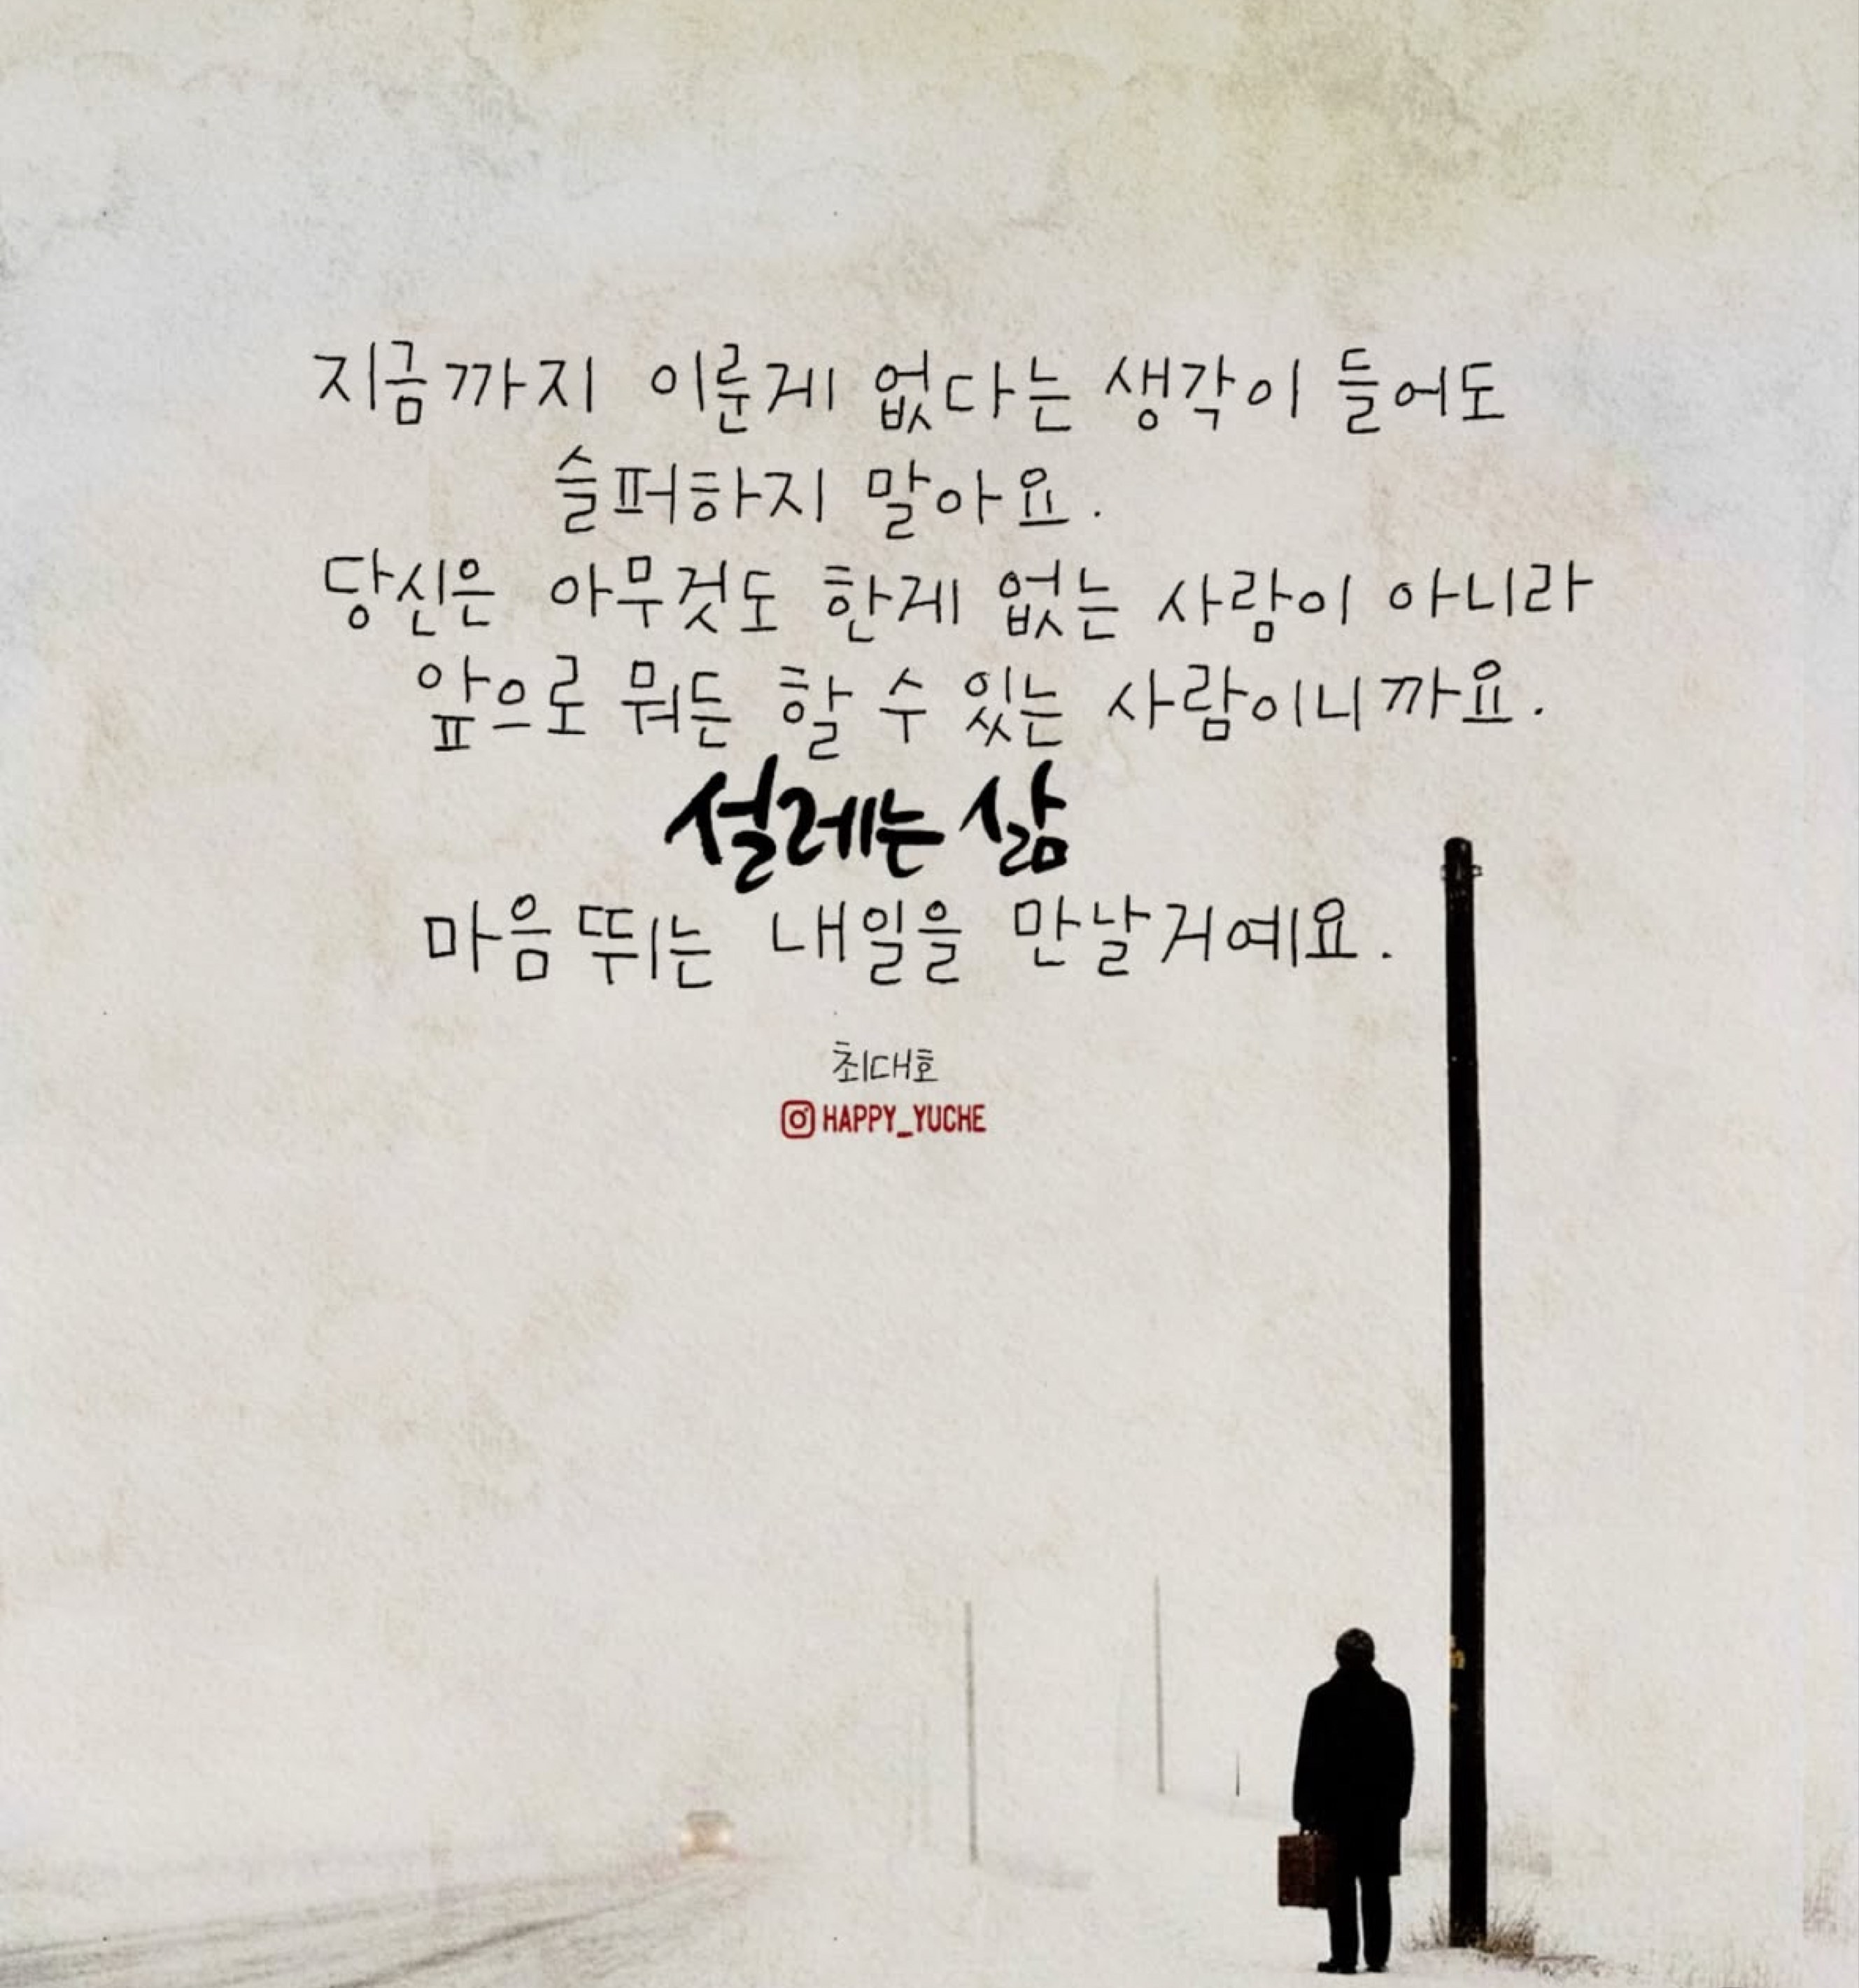 지금까지 이룬게 없다는 생각이 들어도
슬퍼하지 말아요.
당신은 아무것도 한게 없는 사람이 아니라
앞으로 뭐든 할 수 있는 사람이니까요.
설레는 삶
마음 뛰는 내일을 만날거예요.
최대호
HAPPY_YUCHE